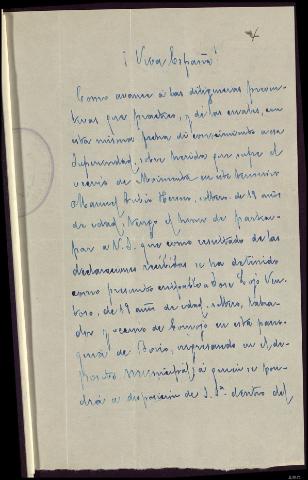 ¡ Viva España !
Como avance á las diligencias preven-
tivas que practico, y de las cuales, en
esta misma fecha dí conocimiento a esa
Superioridad, sobre heridas que sufre el
vecino de en este termino
Manuel Rubio soltero de 19 años
de edad, tengo el honor de partici-
par a V.S. que como resultado de las
declaraciones recibidas se ha detenido
como presunto culpable a Jose
de 19 años de edad, soltero, labra-
dor y vecino de en esta parro-
quia de ingresando en el de-
posito municipal, á quien se pon-
drá a disposicion de S.Sª. dentro del